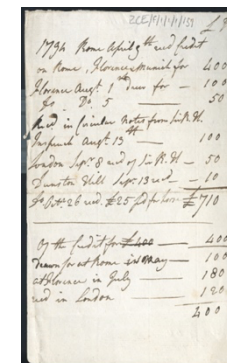 ZCE/F/1/1/1/159
£
1794 Rome April 9th recd Credit
on Rome, Florence Munich for 400
Florence Augt 1st Drew for — 100
Do Do. 5 — 50
Recd in Circular Notes from Sir R. H.
Inspruck Augt 13th — 100
London Sepr 8 recd of Sir R. H. — 50
Dunston Hill Sepr 13 recd — 10
Do Octr 26 recd. £25 pd for horse £710
Of the Credit for £400 — 400
Drawn for at Rome in May — 100
at Florence in July — 180
recd in London — 120
400